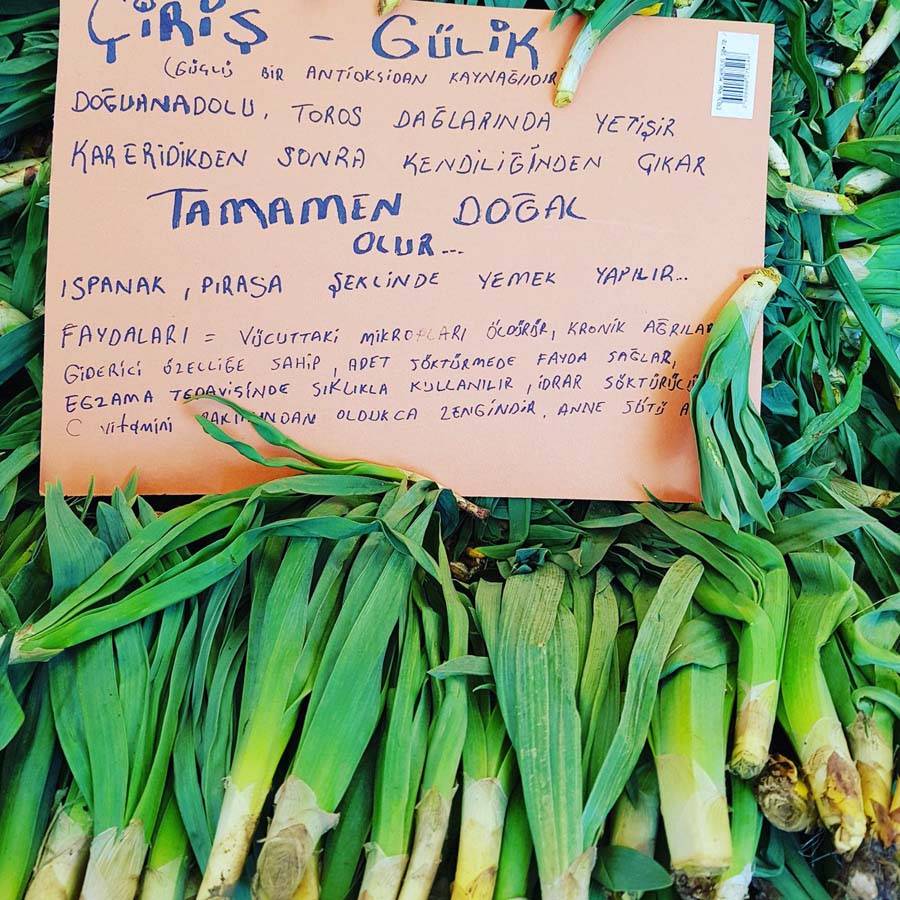 ÇİRİŞ - GÜLİK
(GÜÇLÜ BİR ANTİOKSİDAN KAYNAĞIDIR
DOĞUANADOLU, TOROS DAĞLARINDA YETİŞİR
KARERİDİKDEN SONRA KENDİLİĞİNDEN ÇIKAR
TAMAMEN DOĞAL
OLUR...
ISPANAK, PIRASA ŞEKLİNDE YEMEK YAPILIR...
FAYDALARI = VÜCUTTAKİ MİKROPLARI ÖLDÜRÜR, KRONİK AĞRILAR
GİDERİCİ ÖZELLİĞE SAHİP, ADET SÖKTÜRMEDE FAYDA SAĞLAR,
EGZAMA TEDAVİSİNDE SIKLIKLA KULLANILIR, İDRAR SÖKTÜRÜCÜ
C vitamini BAKIMINDAN OLDUKCA ZENGİNDİR, ANNE SÜTÜ